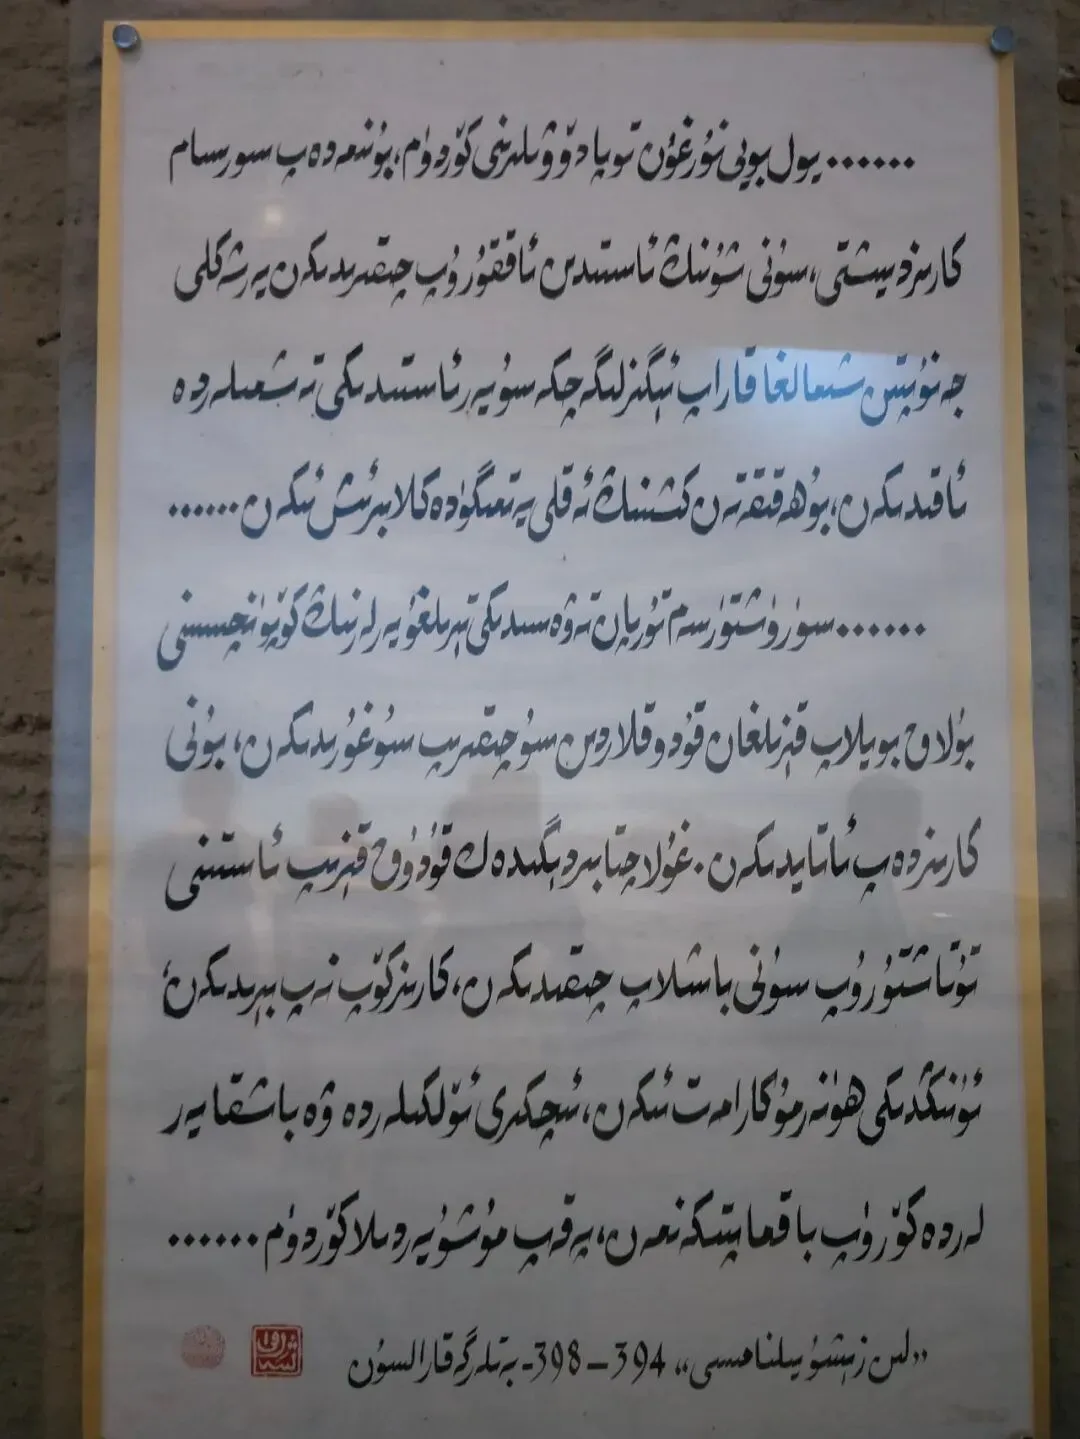 ...... يول بويى نۇرغۇن توپا دۆۋىلىرىنى كۆردۈم، بۇ نېمە دەپ سورىسام
كارىز دېيىشتى، سۇنى شۇنىڭ ئاستىدىن ئاققۇزۇپ چىقىرىدىكەن يەر شەكلى
جەنۇپتىن شىمالغا قاراپ ئېگىزلىگەچكە سۇ يەر ئاستىدىكى تەشمىلەردە
ئاقىدىكەن، بۇ ھەقىقەتەن كىشىنىڭ ئەقلى يەتمىگۈدەك ئالا بىر ئىش ئىكەن ......
...... سۈرۈشتۈرسەم تۇرپان تەۋەسىدىكى تېرىلغۇ يەرلەرنىڭ كۆپۈنچىسىنى
بۇلاق بويلاپ قېزىلغان قۇدۇقلاردىن سۇ چىقىرىپ سۇغۇرىدىكەن، بۇنى
كارىز دەپ ئاتايدىكەن. غۇلاچتا بىر دېگىدەك قۇدۇق قېزىپ ئاستىنى
تۇتاشتۇرۇپ سۇنى باشلاپ چىقىدىكەن، كارىز كۆپ نەپ بېرىدىكەن،
ئۇنىڭدىكى ھۈنەرمۇ كارامەت ئىكەن، ئىچكىرى ئۆلكىلەردە ۋە باشقا يەر
لەردە كۆرۈپ باقماپتىكەنمەن، پەقەپ مۇشۇ يەردىلا كۆردۈم ......
«لىن زېشۈ يىلنامىسى» 394 – 398- بەتلەرگە قارالسۇن